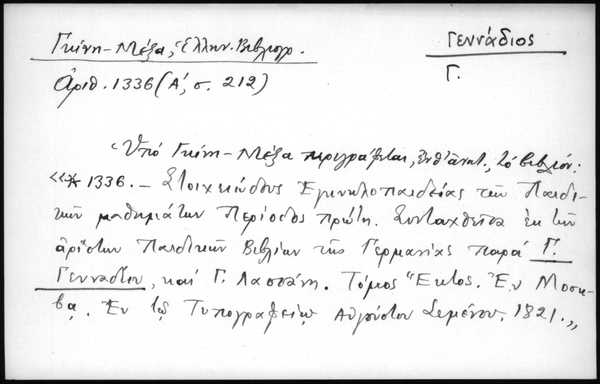 Γκίνη-Μέξα, Ἑλλην. Βιβλιογρ.
Γεννάδιος
Ἀριθ. 1336 (Α΄, σ. 212)
Γ.
Ὑπό Γκίνη-Μέξα περιγράφεται, ἐνθ᾽ ἀνωτ., τό βιβλίον:
«* 1336. – Στοιχειώδους Ἐγκυκλοπαιδείας τῶν Παιδι-
κῶν μαθημάτων Περίοδος πρώτη. Συνταχθεῖσα ἐκ τῶν
ἀρίστων Παιδικῶν Βιβλίων τῆς Γερμανίας παρά Γ.
Γενναδίου, καί Γ. Λασσάνη. Τόμος Ἕκτος. Ἐν Μοσχ-
βᾳ. Ἐν τῷ Τυπογραφείῳ Αὐγούστου Σεμένου. 1821.»